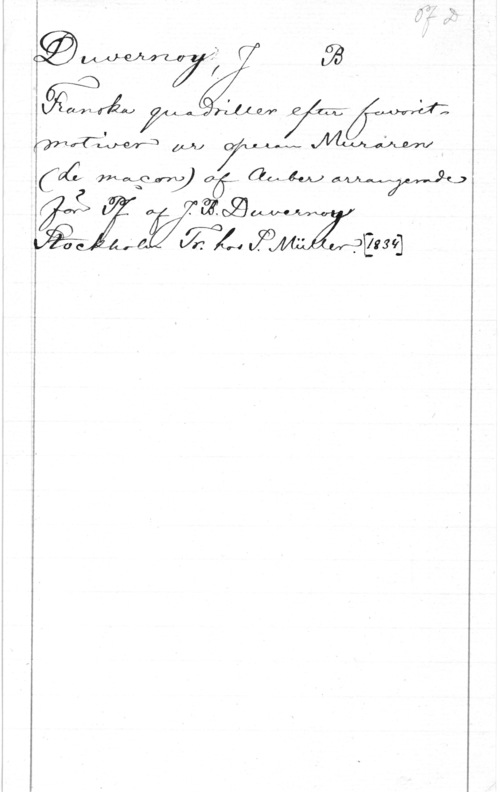 Pf D
Duvernoy, J B
Franska quadriller efter favorit-
motiver ur operan Muraren
(Le maçon) af Auber arrangerade
för Pf af J. B. Duvernoy
Stockholm Tr. hos P. Müller. [1834]